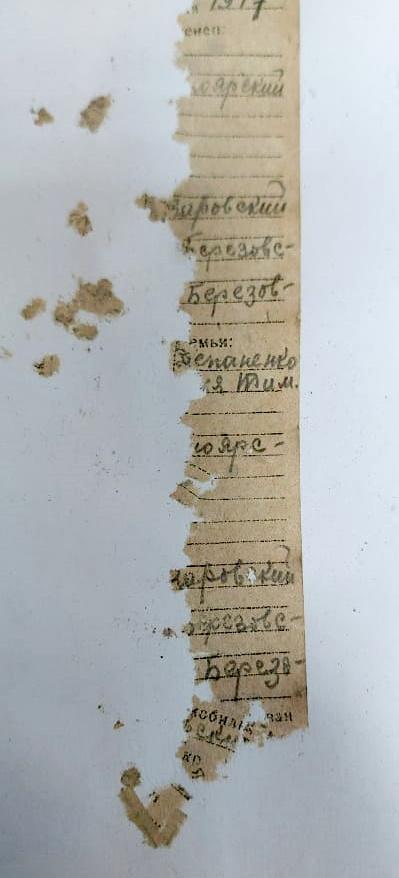 1917
оярский
заровский
Березовс-
Березов-
емьи:
Степаненко
ия Тим.
оярс-
заровский
ерезовс-
Березо-
обилизован